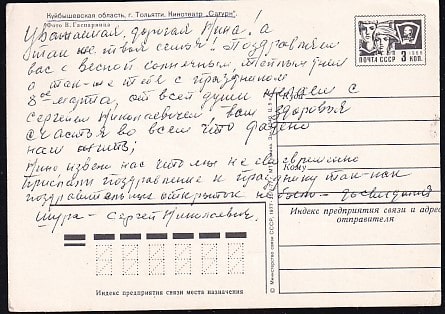 Куйбышевская область, г. Тольятти. Кинотеатр „Сатурн".
Фото В. Гаспарянца
Уважаемая, дорогая Нина! а
так же твоя семья! Поздравляем
вас с весной солнечным, теплым днём
а так-же тебя с праздником
8ое марта, от всей души желаем с
Сергеем Николаевичем, вам здоровья
счастья во всем что
нам жить;
Нино извени нас что мы не своевременно
прислали поздравление к празднику так-как
поздравительных открыток не было – досвидания
Шура – Сергей Николаевич.
ПОЧТА СССР
3 КОП.
Куда
Кому
Индекс предприятия связи и адрес
отправителя
Индекс предприятия связи места назначения
© Министерство связи СССР, 1977